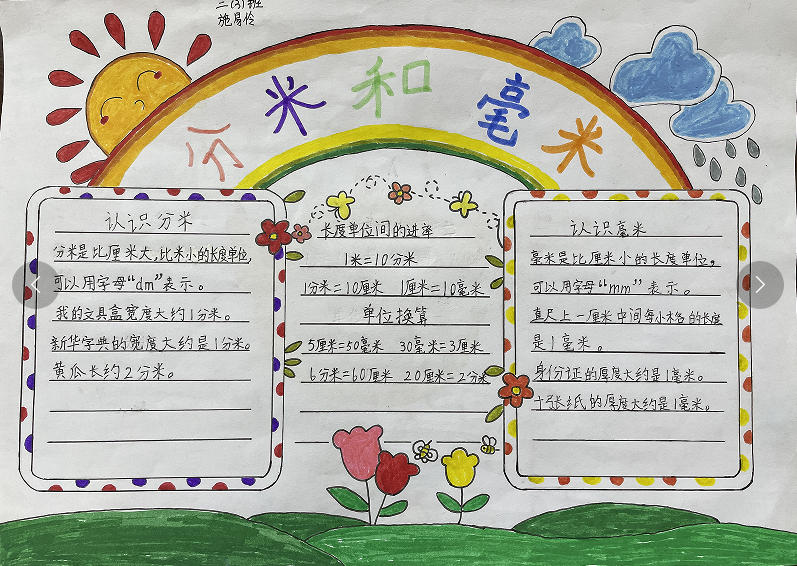 二(3)班
施易伶
分米和毫米
认识分米
分米是比厘米大,比米小的长度单位,
可以用字母“dm”表示。
我的文具盒宽度大约1分米。
新华字典的宽度大约是1分米。
黄瓜长约2分米。
长度单位间的进率
1米=10分米
1分米=10厘米 1厘米=10毫米
单位换算
5厘米=50毫米 30毫米=3厘米
6分米=60厘米 20厘米=2分米
认识毫米
毫米是比厘米小的长度单位,
可以用字母“mm”表示。
直尺上一厘米中间每小格的长度
是1毫米。
身份证的厚度大约是1毫米。
十张纸的厚度大约是1毫米。